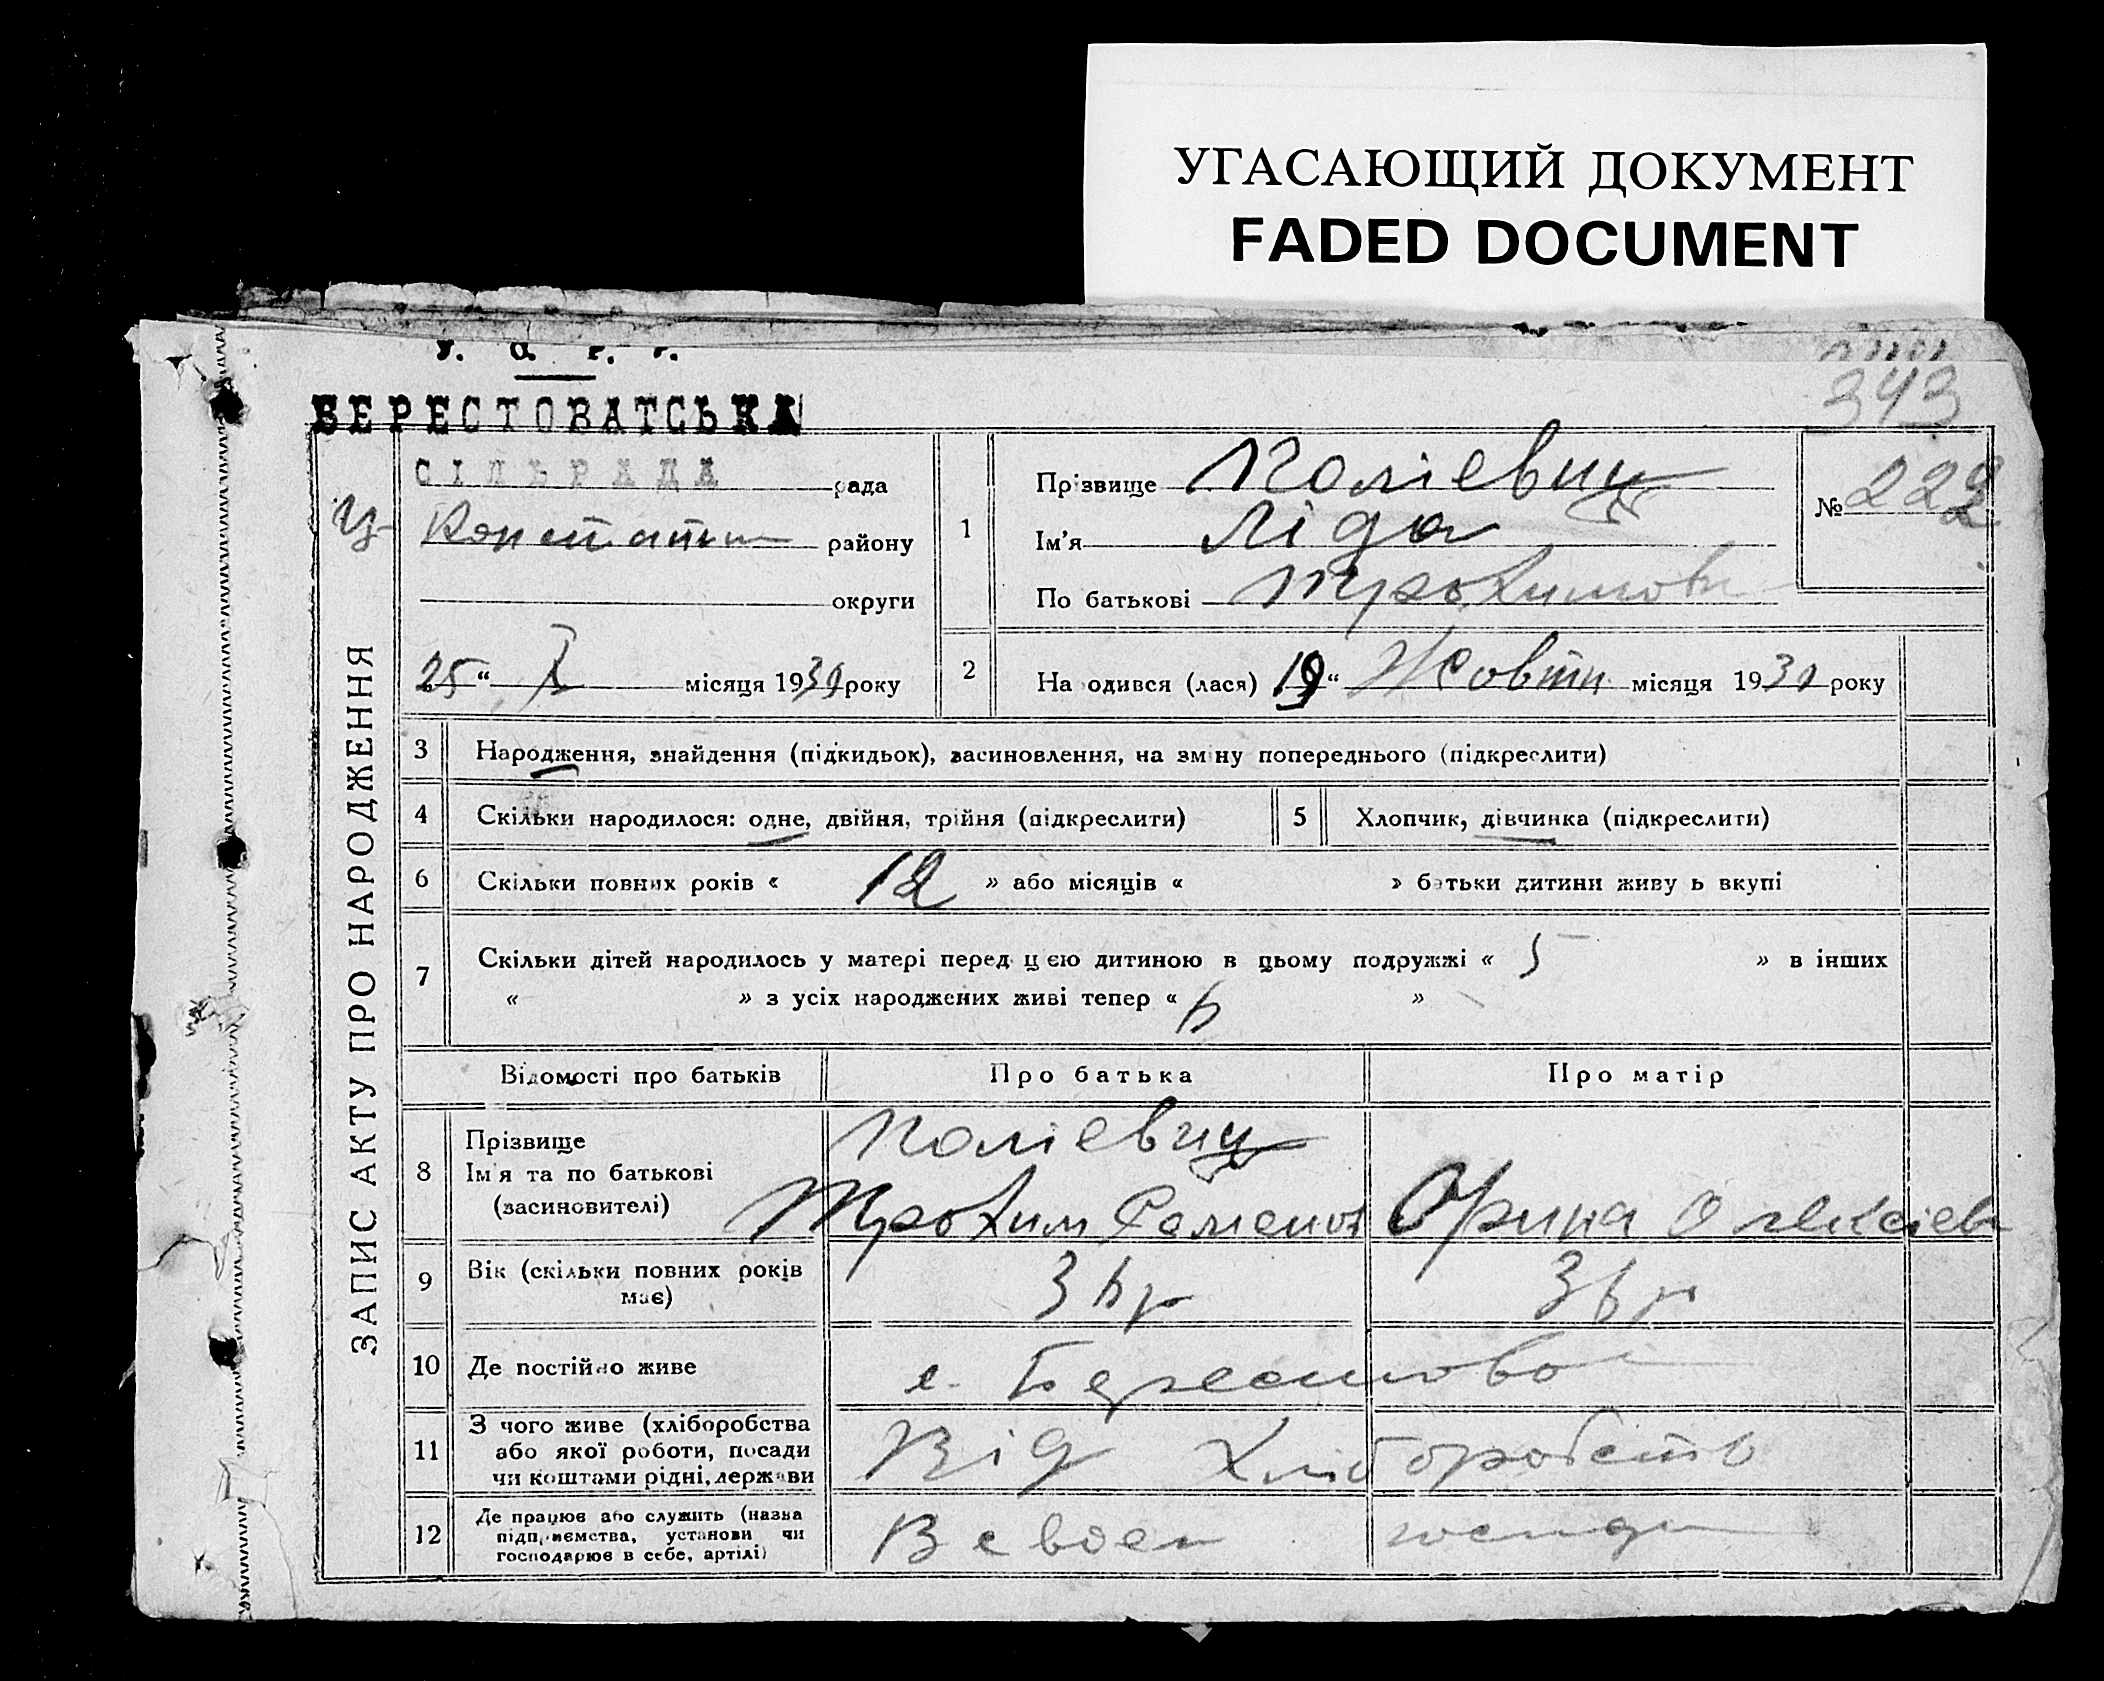 УГАСАЮЩИЙ ДОКУМЕНТ
FADED DOCUMENT
343
БЕРЕСТОВАТСЬКА
СІЛЬРАДА рада
району
округи
25 “ X місяця 193 року
ЗАПИС АКТУ ПРО НАРОДЖЕННЯ
1 Прізвище
Ім'я Ліда
По батькові Трохимовн
№ 222
2 На одився (лася) 19 “ Жовтн місяця 193 року
3 Народження, знайдення (підкидьок), засиновлення, на зміну попереднього (підкреслити)
4 Скільки народилося: одне, двійня, трійня (підкреслити)
5 Хлопчик, дівчинка (підкреслити)
6 Скільки повних років « 12 » або місяців « » батьки дитини живу ь вкупі
7 Скільки дітей народилось у матері перед цією дитиною в цьому подружжі « 5 » в інших
« » з усіх народжених живі тепер « »
Відомості про батьків Про батька Про матір
8 Прізвище
Ім'я та по батькові Трохим Семенов Орина Олексіев
(засиновителі)
9 Вік (скільки повних років
має)
10 Де постійно живе с. Берестово
11 З чого живе (хліборобства
або якої роботи, посади
чи коштами рідні, держави Від Хліборобств
12 Де працює або служить (назва
підприємства, установи чи
господарює в себе, артілі) В своем